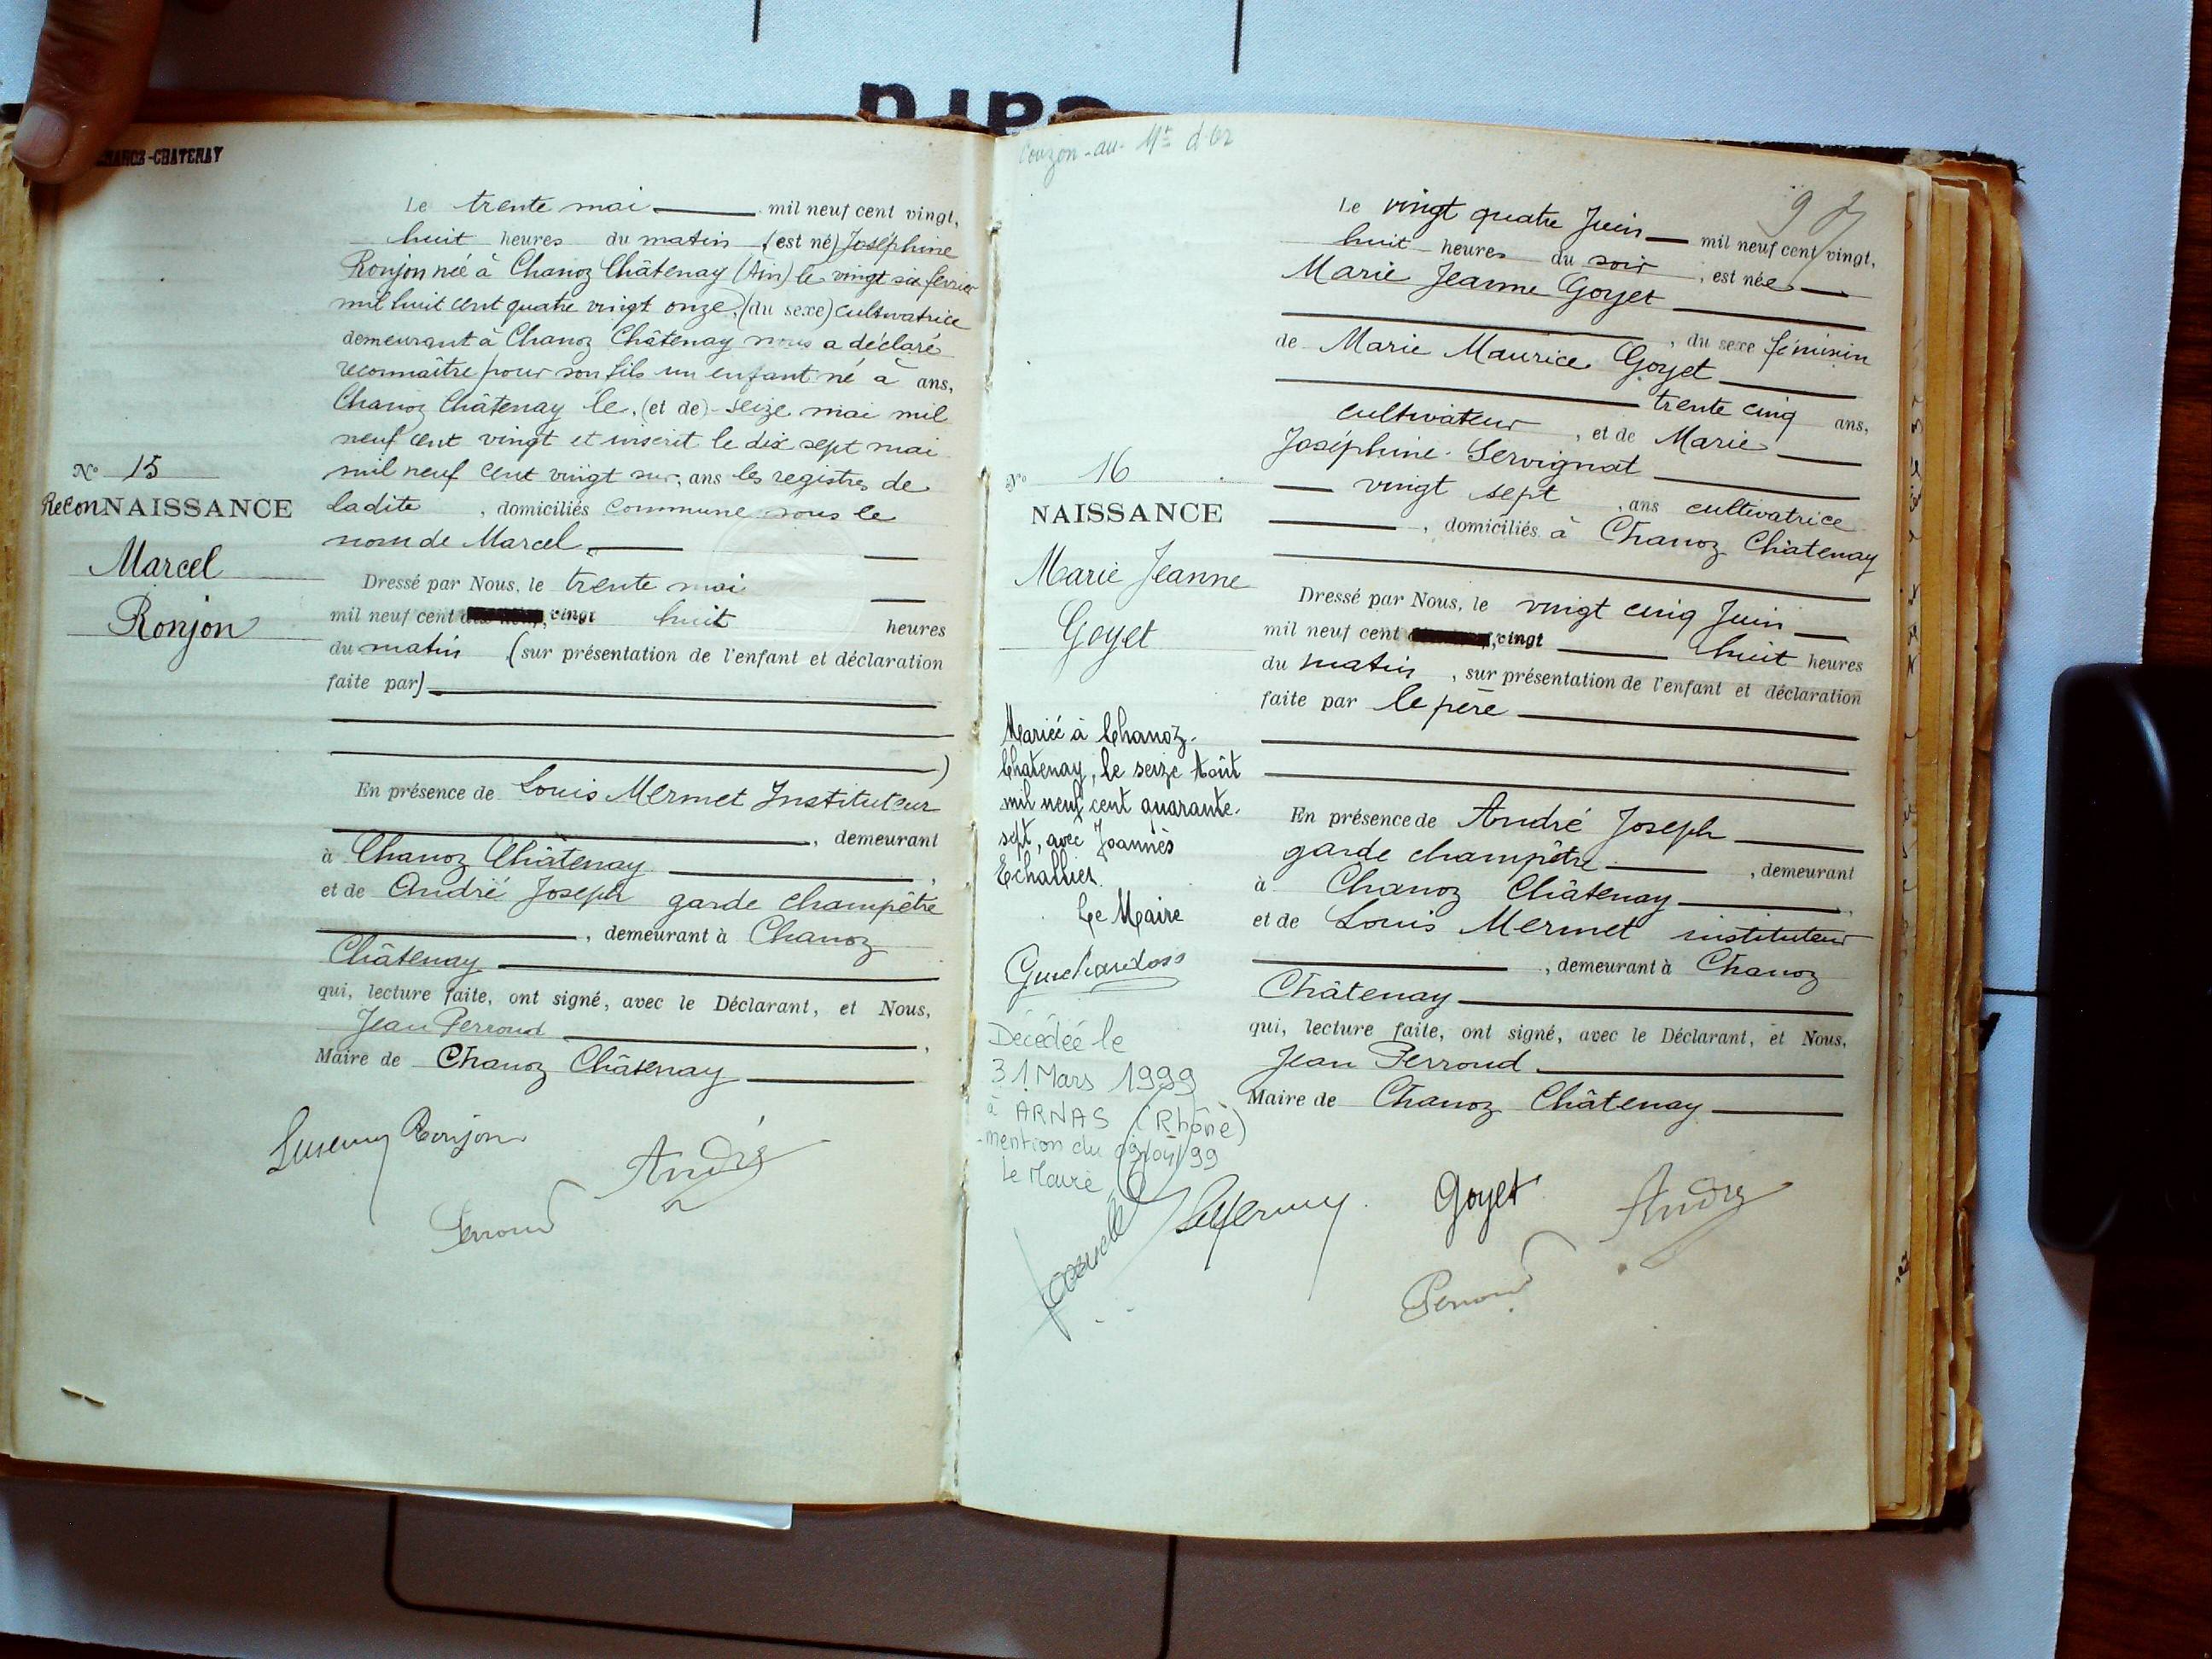 CHANOZ-CHATENAY
Le trente mai mil neuf cent vingt,
huit heures du matin (est né) Joséphine
Ronjon née à Chanoz Châtenay (Ain) le vingt six février
mil huit cent quatre vingt onze, (du sexe) cultivatrice
demeurant à Chanoz Châtenay nous a déclaré
reconnaître pour son fils un enfant né à ans,
Chanoz Châtenay le, (et de) seize mai mil
neuf cent vingt et inscrit le dix sept mai
mil neuf cent vingt sur, ans les registres de
ladite , domiciliés commune sous le
nom de Marcel.
N° 15
ReconNAISSANCE
Marcel
Ronjon
Dressé par Nous, le trente mai
mil neuf cent vingt huit heures
du matin (sur présentation de l'enfant et déclaration
faite par)
)
En présence de Louis Mermet Instituteur
, demeurant
à Chanoz Châtenay ,
et de André Joseph garde champêtre
, demeurant à Chanoz
Châtenay
qui, lecture faite, ont signé, avec le Déclarant, et Nous,
Jean Perroud ,
Maire de Chanoz Châtenay
Ronjon
André
Perroud
Couzon-au-Mt d'Or
Le vingt quatre Juin mil neuf cent vingt,
huit heures du soir , est née
Marie Jeanne Goyet
, du sexe féminin
de Marie Maurice Goyet
trente cinq ans,
cultivateur , et de Marie
Joséphine Servignat
vingt sept , ans cultivatrice
, domiciliés à Chanoz Châtenay
N° 16
NAISSANCE
Marie Jeanne
Goyet
Dressé par Nous, le vingt cinq Juin
mil neuf cent vingt huit heures
du matin , sur présentation de l'enfant et déclaration
faite par le père
Mariée à Chanoz-
Chatenay, le seize Août
mil neuf cent quarante-
sept, avec Joannès
Echallier.
Le Maire
Décédée le
31 Mars 1999
à ARNAS (Rhône)
mention du /04/99
Le Maire
En présence de André Joseph
garde champêtre , demeurant
à Chanoz Châtenay ,
et de Louis Mermet instituteur
, demeurant à Chanoz
Châtenay
qui, lecture faite, ont signé, avec le Déclarant, et Nous,
Jean Perroud
Maire de Chanoz Châtenay
Goyet
André
Perroud